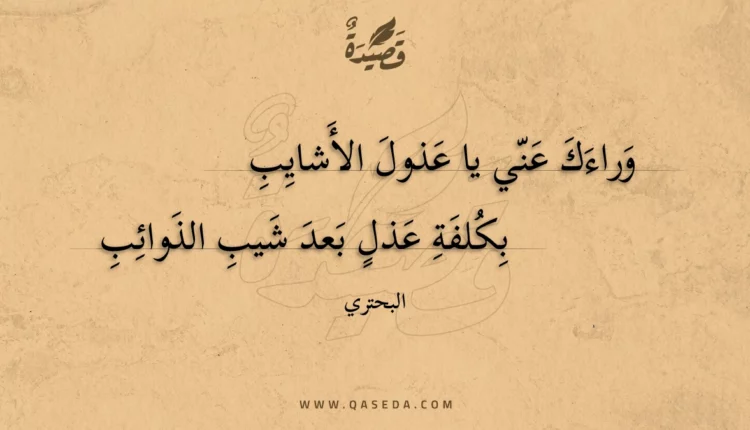 قَصِيْدَةٌ
وَراءَكَ عَنّي يا عَذولَ الأَشايِبِ
بِكُلفَةِ عَذلٍ بَعدَ شَيبِ الذَوائِبِ
البحتري
WWW.QASEDA.COM